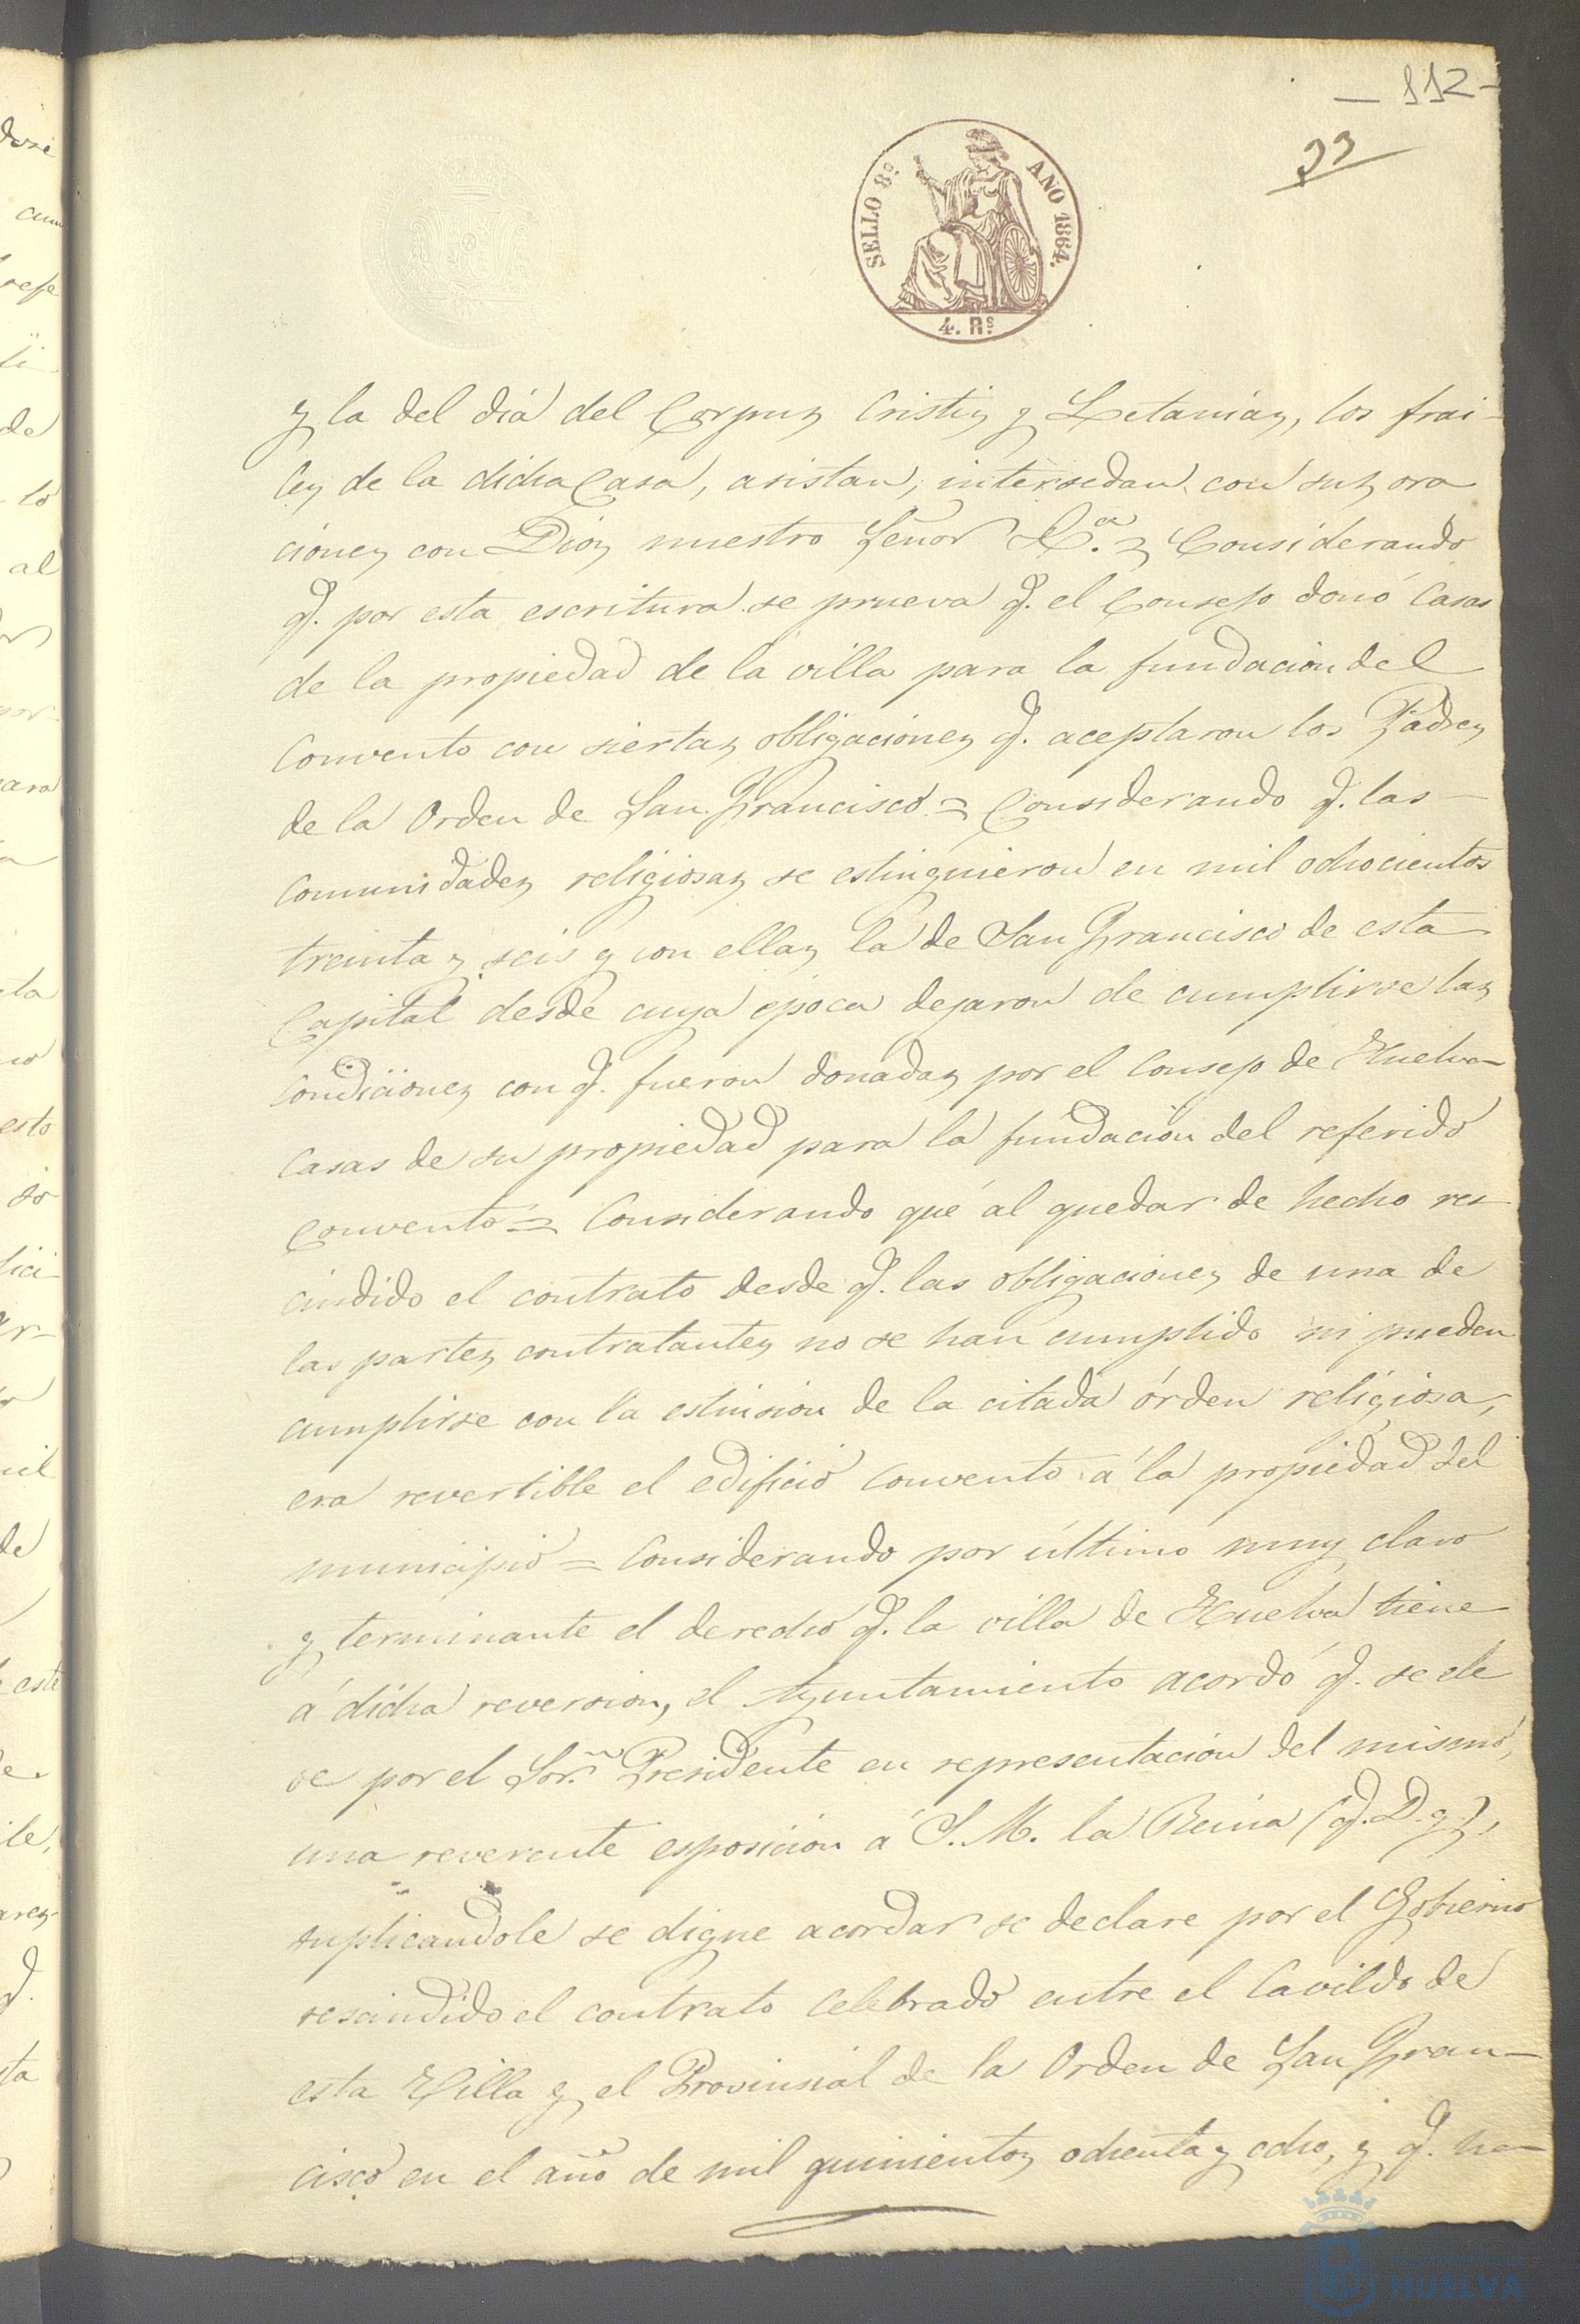 - 112 -
33
SELLO 8º AÑO 1864.
4. Rs
y la del diá del Corpus Cristis y Letanías, los frai-
les de la dicha Casa, asistan, intersedan con sus ora
ciones con Dios nuestro Señor &.ª = Considerando
q. por esta escritura se prueva q. el Consejo donó Casas
de la propiedad de la villa para la fundacion del
Convento con siertas obligaciones q. aceptaron los Padres
de la Orden de San Francisco = Considerando q. las
Comunidades religiosas se estinguieron en mil ochocientos
treinta y seis y con ellas la de San Francisco de esta
Capital desde cuya época dejaron de cumplirse las
Condiciones con q. fueron donadas por el Consejo de Huelva
Casas de su propiedad para la fundacion del referido
Convento = Considerando que al quedar de hecho res-
cindido el contrato desde q. las obligaciones de una de
las partes contratantes no se han cumplido ni pueden
cumplirse con la estinsion de la citada órden religiosa,
era revertible el edificio Convento á la propiedad del
municipio = Considerando por último muy claro
y terminante el derecho q. la villa de Huelva tiene
á dicha reversion, el Ayuntamiento acordó q. se ele
ve por el Sor. Presidente en representacion del mismo,
una reverente esposicion á S. M. la Reina (q. D. g.),
suplicandole se digne acordar se declare por el Gobierno
rescindido el contrato celebrado entre el Cavildo de
esta Villa y el Provinsial de la Orden de San Fran-
cisco en el año de mil quinientos ochenta y ocho, y q. ha-
HUELVA